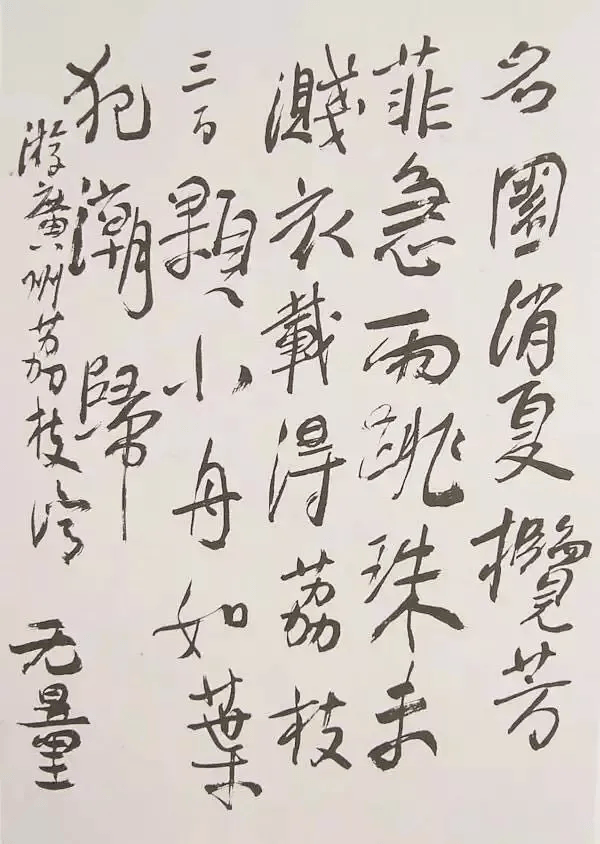 名園消夏攬芳
菲急雨跳珠未
濺衣載得荔枝
三百顆小舟如葉
犯潮歸
游廣州荔枝灣 无量